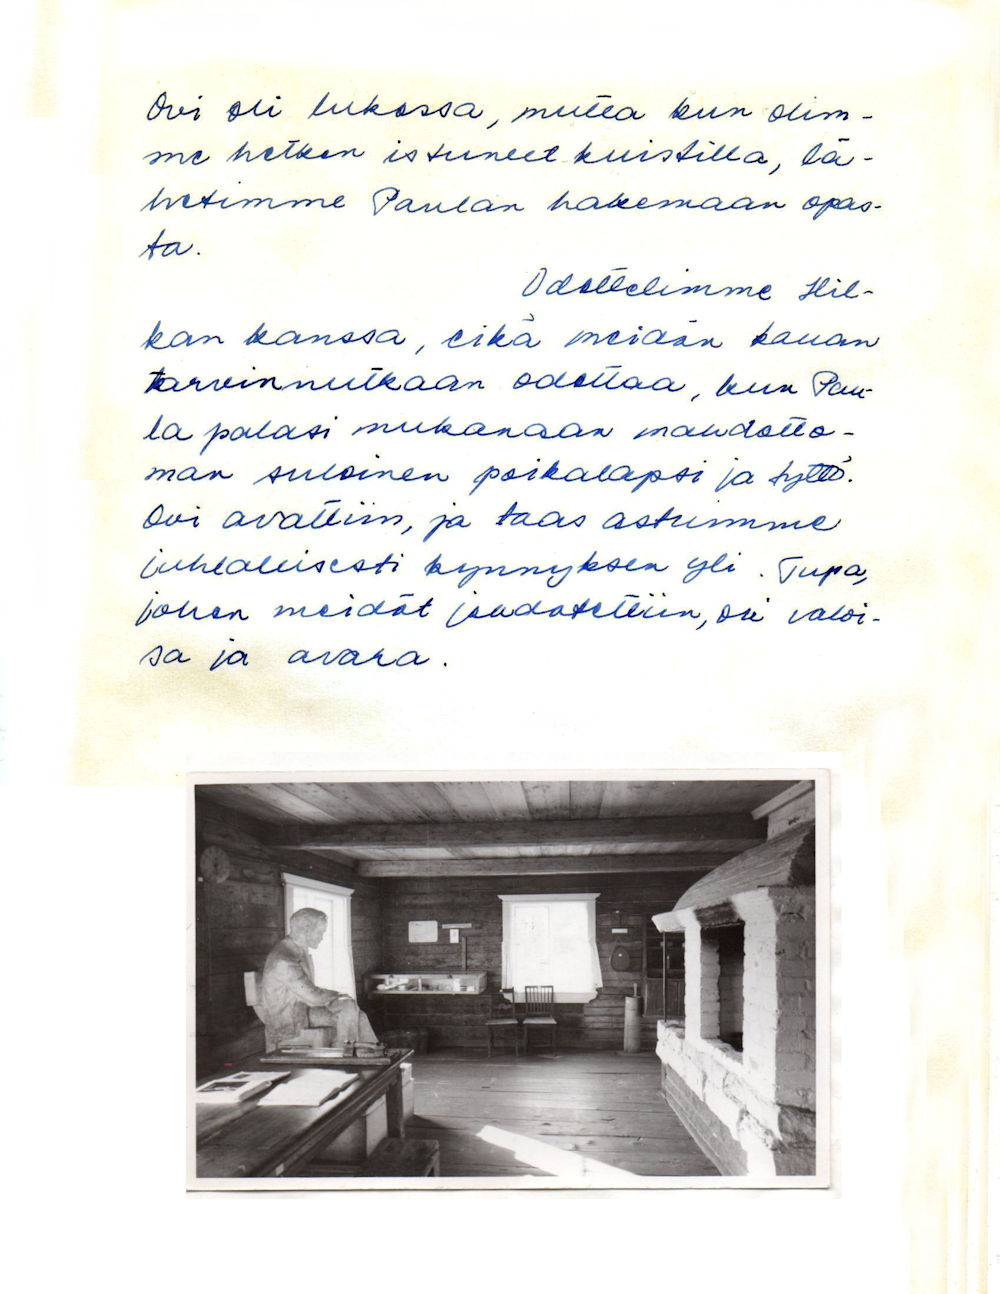 Ovi oli lukossa, mutta kun olim-
me hetken istuneet kuistilla, lä-
hetimme Paulan hakemaan opas-
ta.
Odottelimme Hil-
kan kanssa, eikä meidän kauan
tarvinnutkaan odottaa, kun Pau-
la palasi mukanaan mahdotto-
man suloinen poikalapsi ja tyttö.
Ovi avattiin, ja taas astuimme
juhlallisesti kynnyksen yli. Tupa,
johon meidät johdatettiin, oli valoi-
sa ja avara.